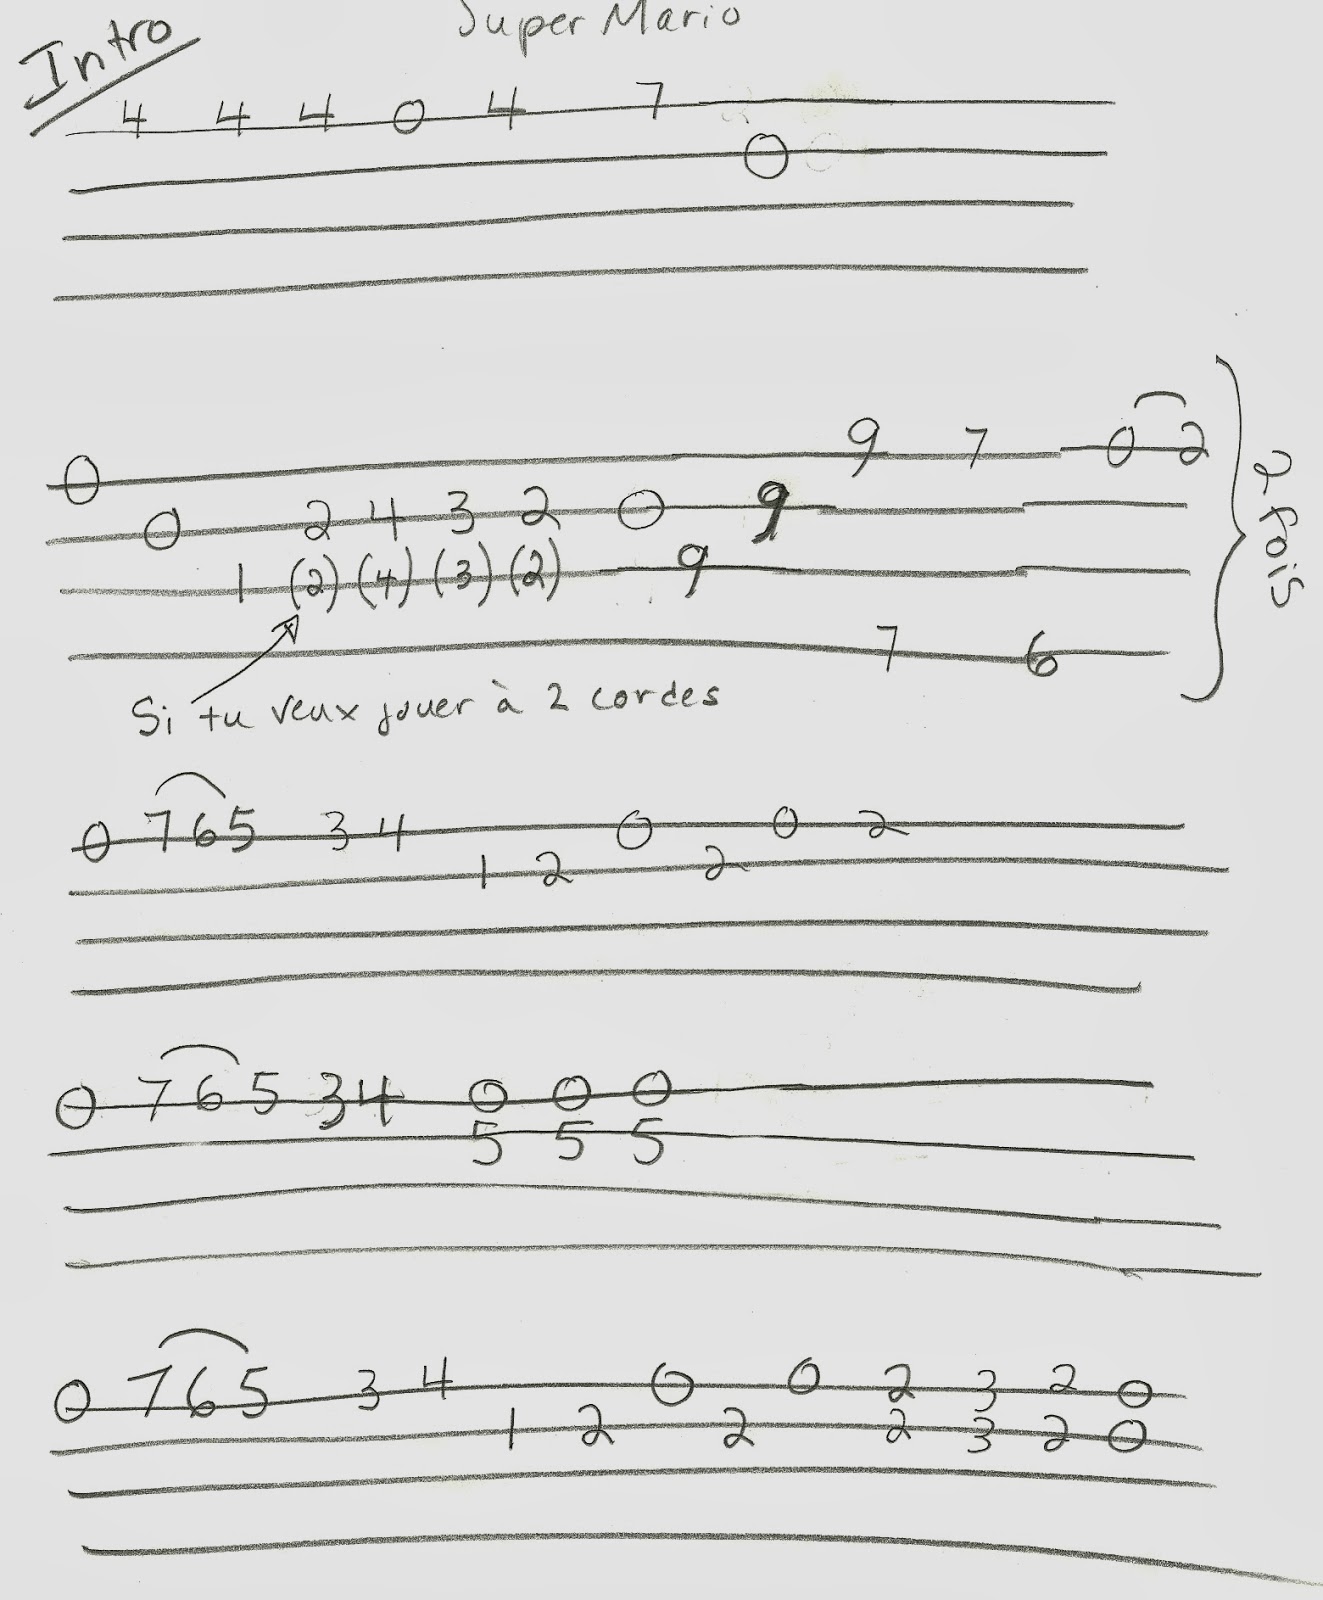 Super Mario
Intro
4 4 4 0 4 7
0
9 7 0 2
0
2 4 3 2 0 9
0
1 (2) (4) (3) (2) 9
7 6
2 fois
Si tu veux jouer à 2 cordes
0 7 6 5 3 4 0 0 2
1 2 2
0 7 6 5 3 4 0 0 0
5 5 5
0 7 6 5 3 4 0 0 2 3 2 0
1 2 2 2 3 2 0